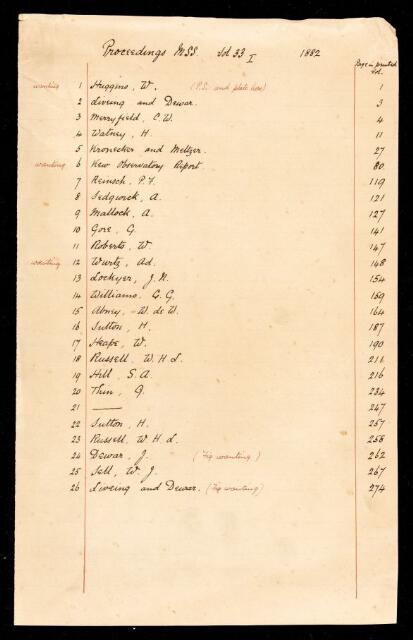 Proceedings MSS. Vol 33 I 1882
Page in printed Vol.
wanting 1 Huggins, W. (P.S. and plate here) 1
2 Liveing and Dewar. 3
3 Merryfield, C. W. 4
4 Watney, H. 11
5 Kronecker and Meltzer. 27
wanting 6 Kew Observatory Report. 80
7 Reinsch, P. F. 119
8 Sedgwick, A. 121
9 Mallock, A. 127
10 Gore, G. 141
11 Roberts, W. 147
wanting 12 Wurtz, Ad. 148
13 Lockyer, J. N. 154
14 Williams. C. G. 159
15 Abney, W. de W. 164
16 Sutton, H. 187
17 Heape, W. 190
18 Russell. W. H L. 211
19 Hill, S. A. 216
20 Thin, G. 234
21 —— 247
22 Sutton, H. 257
23 Russell, W H L. 258
24 Dewar, J. (Fig wanting) 262
25 Sell, W. J. 267
26 Liveing and Dewar. (Fig wanting) 274